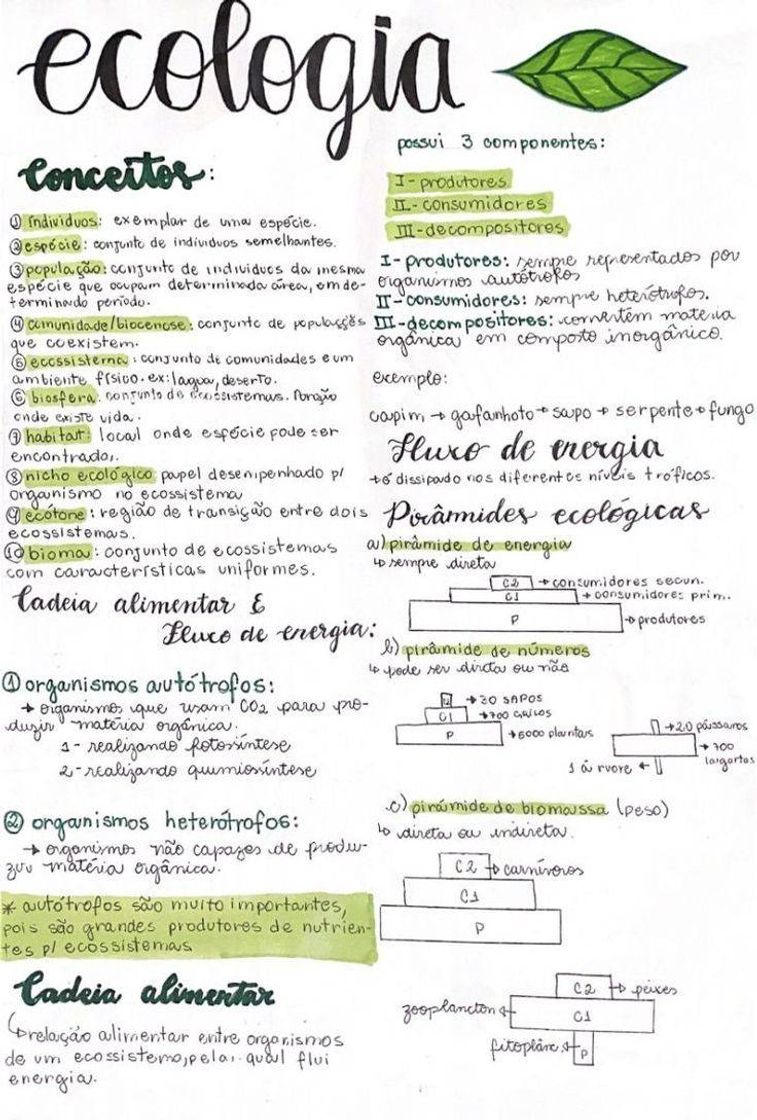 ecologia
Conceitos:
① indivíduos: exemplar de uma espécie.
② espécie: conjunto de indivíduos semelhantes.
③ população: conjunto de indivíduos da mesma
espécie que ocupam determinada área, em de-
terminado período.
④ comunidade/biocenose: conjunto de populações
que coexistem.
⑤ ecossistema: conjunto de comunidades e um
ambiente físico. ex: lagoa, deserto.
⑥ biosfera: conjunto de ecossistemas. Porção
onde existe vida.
⑦ habitat: local onde espécie pode ser
encontrada.
⑧ nicho ecológico: papel desempenhado p/
organismo no ecossistema
⑨ ecótone: região de transição entre dois
ecossistemas.
⑩ bioma: conjunto de ecossistemas
com características uniformes.
Cadeia alimentar &
Fluxo de energia:
① organismos autótrofos:
→ organismos que usam CO2 para pro-
duzir matéria orgânica.
1- realizando fotossíntese
2- realizando quimiossíntese
② organismos heterótrofos:
→ organismos não capazes de produ-
zir matéria orgânica.
* autótrofos são muito importantes,
pois são grandes produtores de nutrien-
tes p/ ecossistemas
Cadeia alimentar
↳ relação alimentar entre organismos
de um ecossistema, pela qual flui
energia.
possui 3 componentes:
I- produtores
II- consumidores
III- decompositores
I- produtores: sempre representados por
organismos autótrofos
II- consumidores: sempre heterótrofos.
III- decompositores: convertêm matéria
orgânica em composto inorgânico.
exemplo:
capim → gafanhoto → sapo → serpente → fungo
Fluxo de energia
→ é dissipado nos diferentes níveis tróficos.
Pirâmides ecológicas
a) pirâmide de energia
↳ sempre direta
C2 → consumidores secun.
C1 → consumidores prim.
P → produtores
b) pirâmide de números
↳ pode ser direta ou não
→ 30 sapos
C1 →
P → 5000 plantas
→ 20 pássaros
→ 300
lagartas
1 árvore ←
c) pirâmide de biomassa (peso)
↳ direta ou indireta.
C2 → carnívoros
C1
P
C2 → peixes
zooplancton ← C1
fitoplânc. ← P